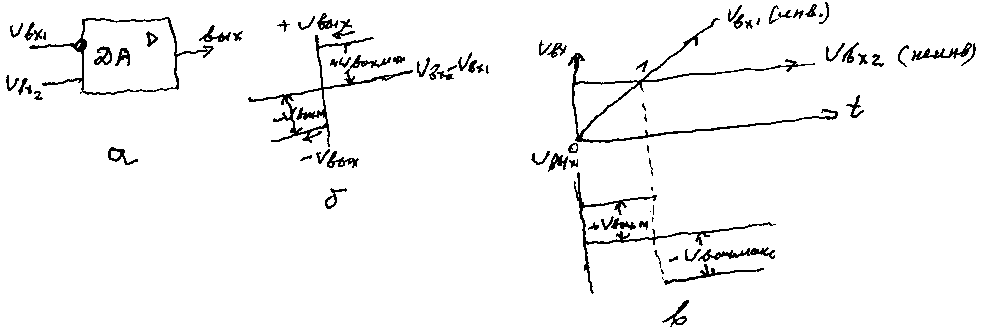 Uвх1
Uвх2
DA
▷
вых
а
+Uвых
+Uвых мах
Uвх2-Uвх1
-Uвых
б
Uвх1 (инв.)
Uвх
1
Uвх2 (неинв)
t
0
Uвых
+Uвых м
-Uвых макс
в